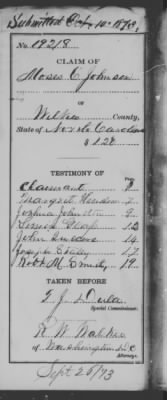 Submitted Oct. 10. 1873,
No. 19218
CLAIM OF
Moses C Johnson
OF
Wilkes County,
State of North Carolina
$128
TESTIMONY OF
Claimant 2
Margaret 7
Joshua Johnston 9
12
John 14
Joseph 17
Robt M. Smith 19
TAKEN BEFORE
T. J. Dula
Special Commissioner.
R. W.
of Washington D.C
Attorney.
Sept 26/73